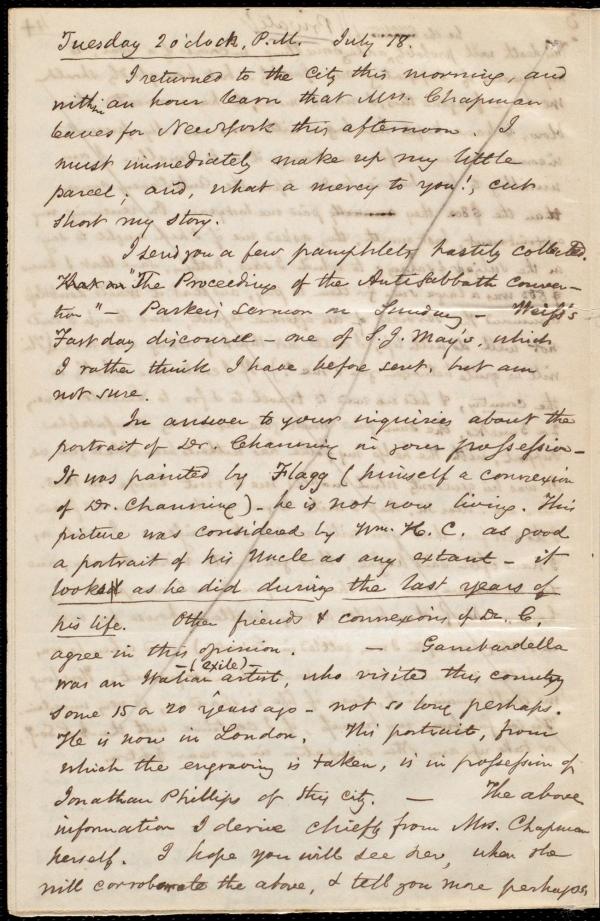 Tuesday 2 o'clock, P.M. July 18.
I returned to the City this morning, and
within an hour learn that Mrs. Chapman
leaves for New York this afternoon. I
must immediately make up my little
parcel, and, what a mercy to you!, cut
short my story.
I send you a few pamphlets, hastily collected.
"The Proceedings of the Anti Sabbath Conven-
tion" — Parker's Sermon on Sunday — Weiss's
Fast day discourse — one of S. J. May's, which
I rather think I have before sent, but am
not sure.
In answer to your inquiries about the
portrait of Dr. Channing in your possession —
It was painted by Flagg (himself a connexion
of Dr. Channing) — he is not now living. This
picture was considered by Wm. H. C. as good
a portrait of his Uncle as any extant — it
looked as he did during the last years of
his life. Other friends & connexions of Dr. C.
agree in this opinion. — Gambardella
was an Italian (exile) artist, who visited this country
some 15 or 20 years ago — not so long perhaps.
He is now in London. His portrait, from
which the engraving is taken, is in possession of
Jonathan Phillips of this city. — The above
information I derive chiefly from Mrs. Chapman
herself. I hope you will see her, when she
will corroborate the above, & tell you more perhaps.